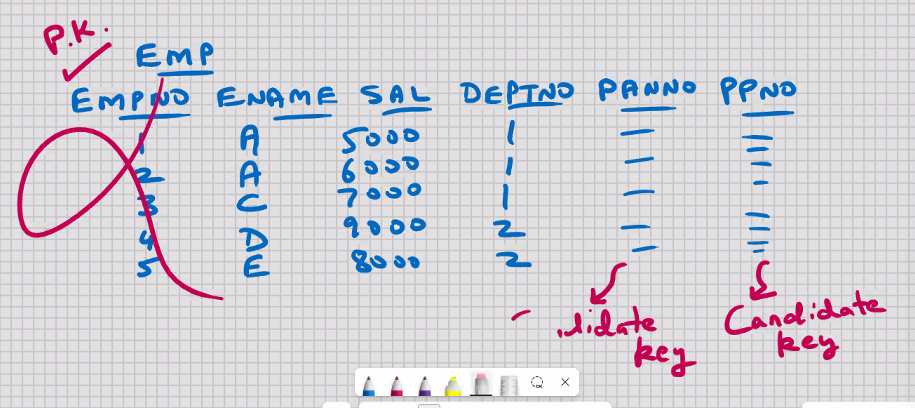 P.K.
EMP
EMPNO ENAME SAL DEPTNO PANNO PPNO
1 A 5000 1
2 A 6000 1
3 C 7000 1
4 D 9000 2
5 E 8000 2
lidate Candidate
key key